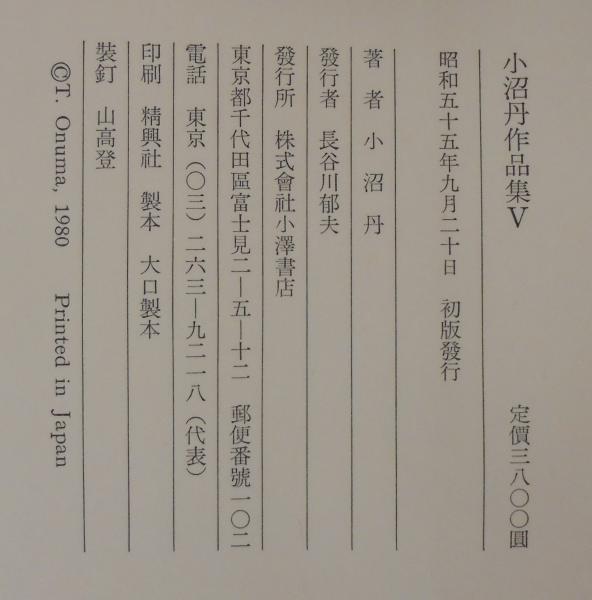 小沼丹作品集Ⅴ　定價三八〇〇圓
昭和五十五年九月二十日　初版發行
著者　小沼丹
發行者　長谷川郁夫
發行所　株式會社小澤書店
東京都千代田區富士見二―五―十二　郵便番號一〇二
電話　東京（〇三）二六三―九二一八（代表）
印刷　精興社　製本　大口製本
裝釘　山高登
©T. Onuma, 1980　Printed in Japan